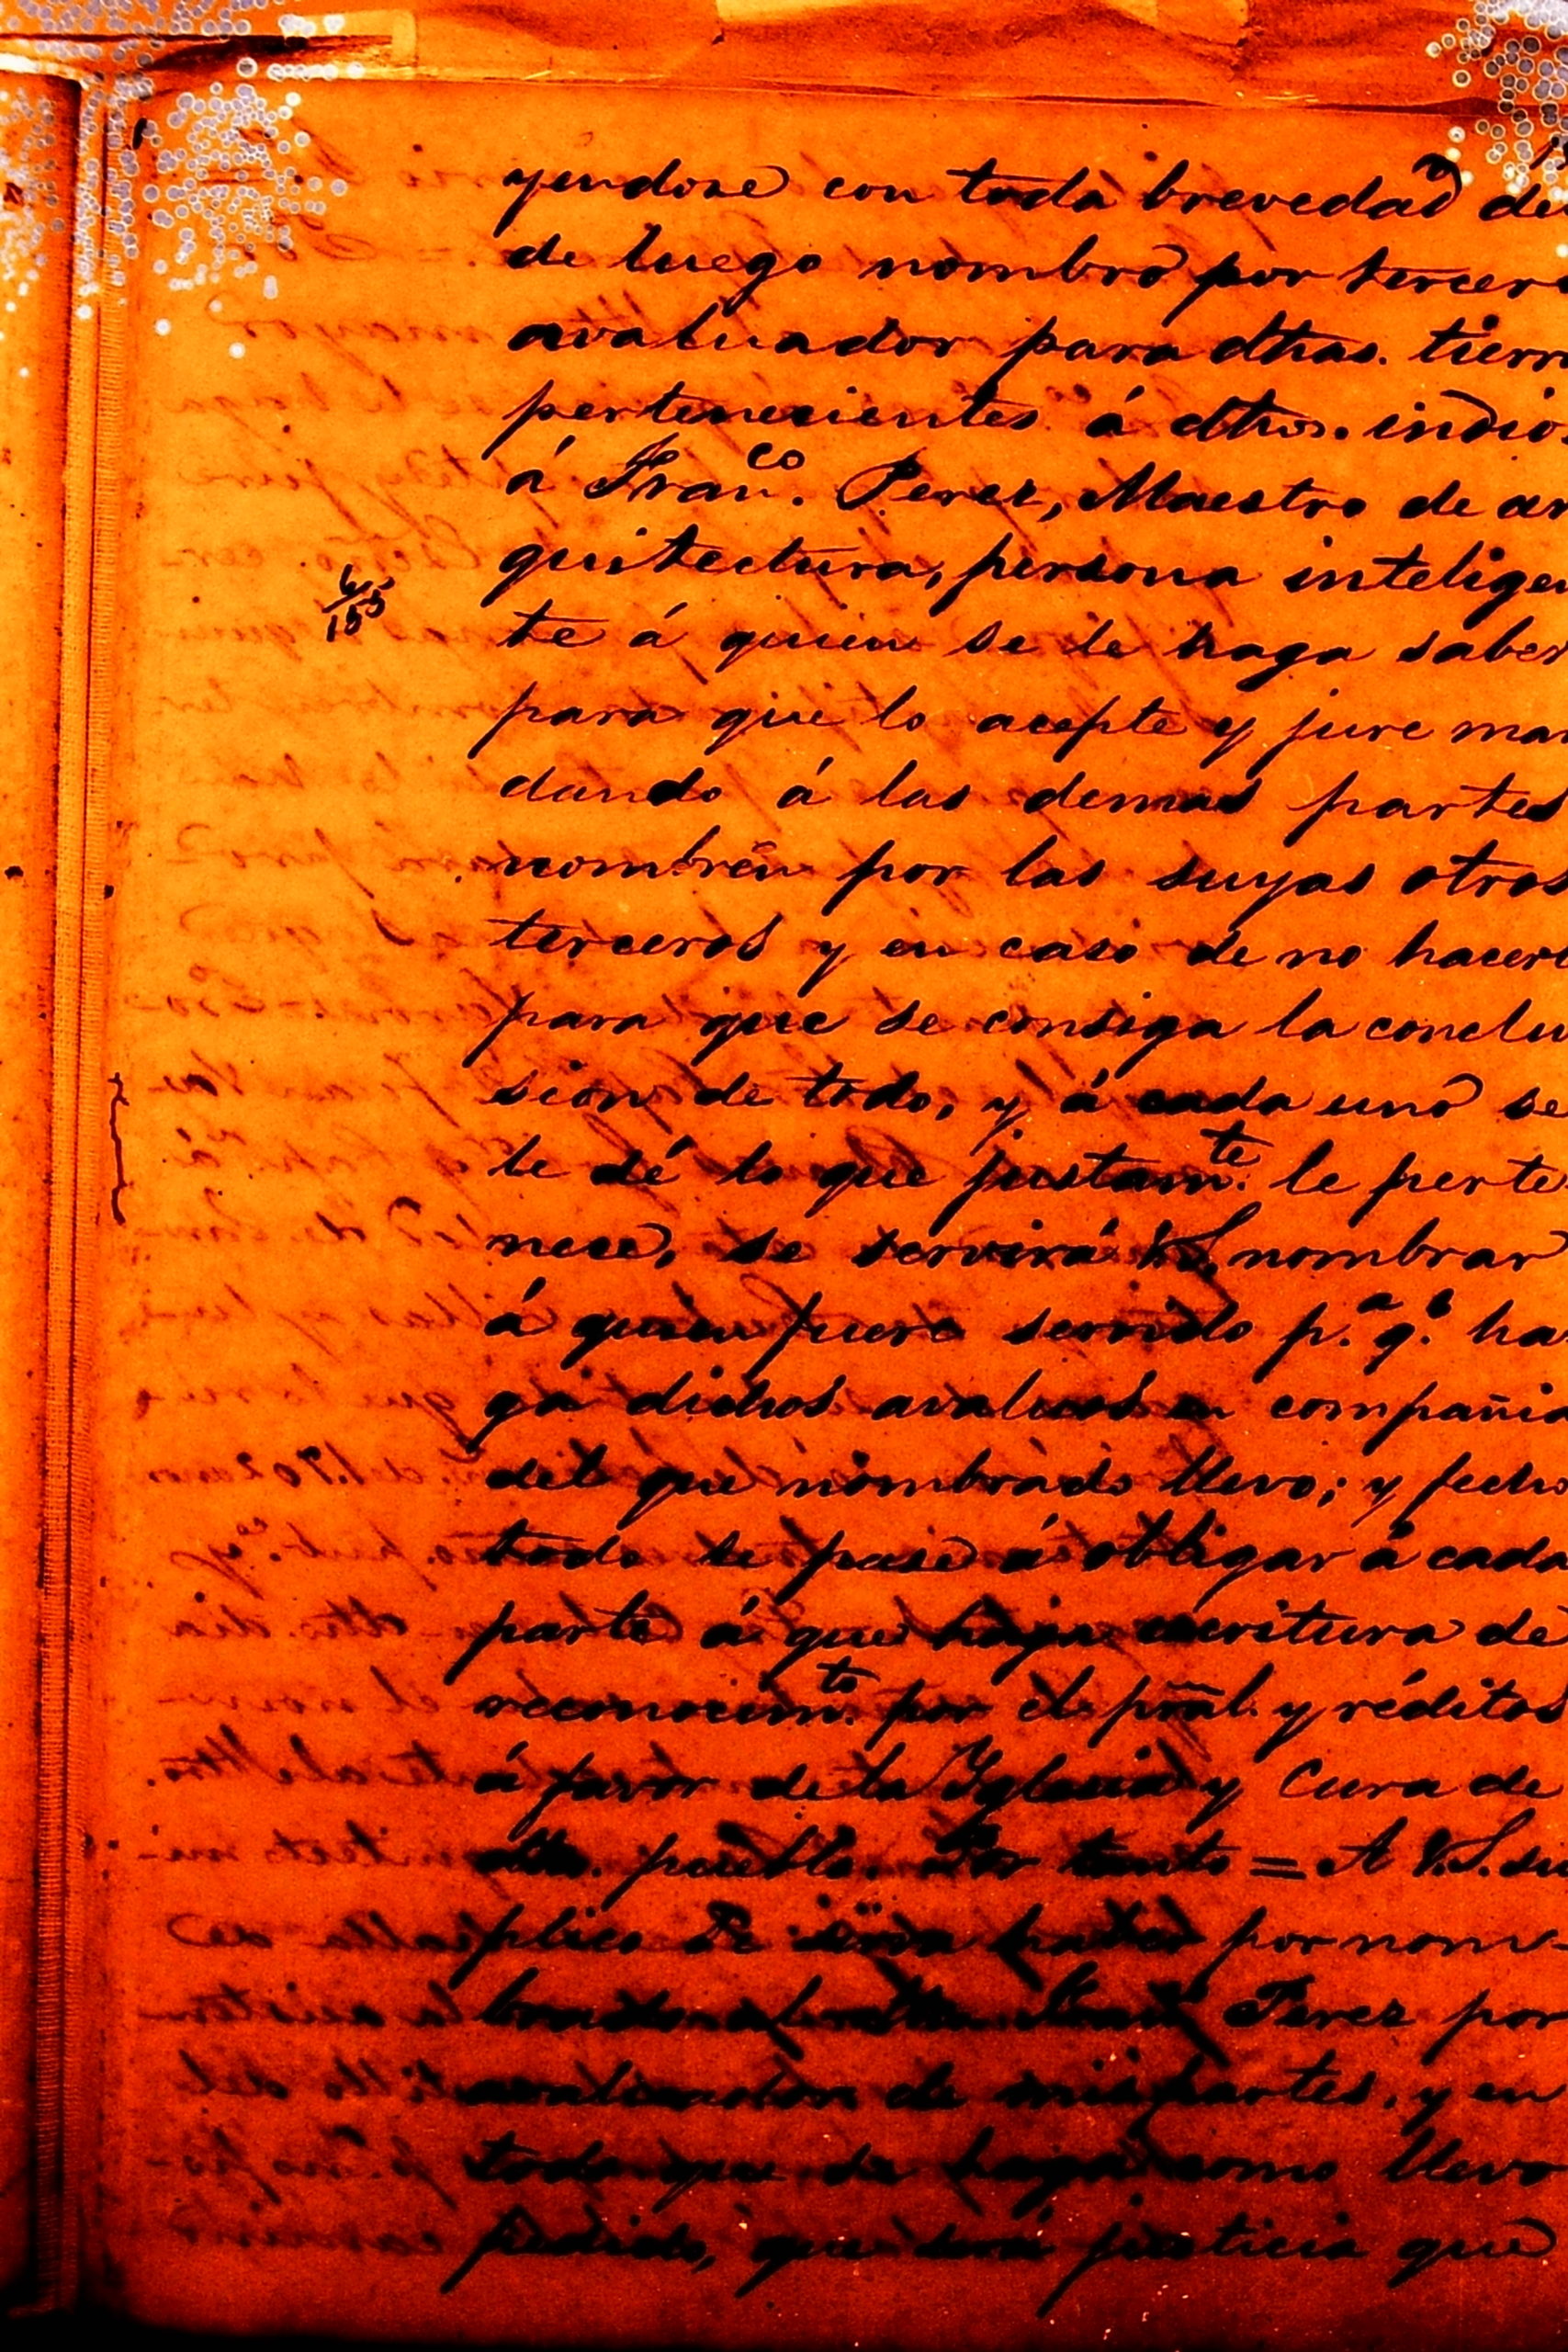 yendose con toda brevedad de
de luego nombro por tercer
avaluador para dhas. tierr
pertenecientes á dhos. indio
á Fran.co Perez, Maestro de ar
quitectura, persona intelige
te á quien se le haga saber
para que lo acepte y jure man
dando á las demas partes
nombren por las suyas otros
terceros y en caso de no hacer
para que se consiga la conclu
sion de todo, y á cada uno se
le dé lo que justam.te le perte
nece, se servirá V.S. nombrar
á quien fuere servido p.a q.e ha
ga dichos avaluos en compañia
del que nombrado llevo; y fecho
todo se pase á obligar á cada
parte á que haga escritura de
reconocim.to por el pral. y réditos
á favor de la Yglesia y Cura de
dho. pueblo. Por tanto = A V.S. su
plico se sirva haber por nom-
brado Perez por
de mis partes, y en
todo que se haga como llevo
pedido, que será justicia que
6/155